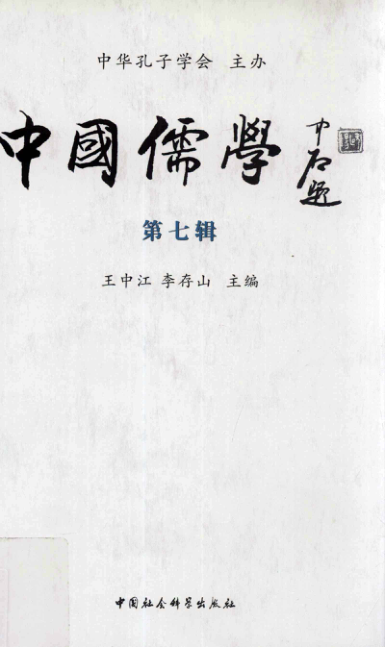 中华孔子学会 主办
中國儒學
中石题
第七辑
王中江 李存山 主编
中国社会科学出版社